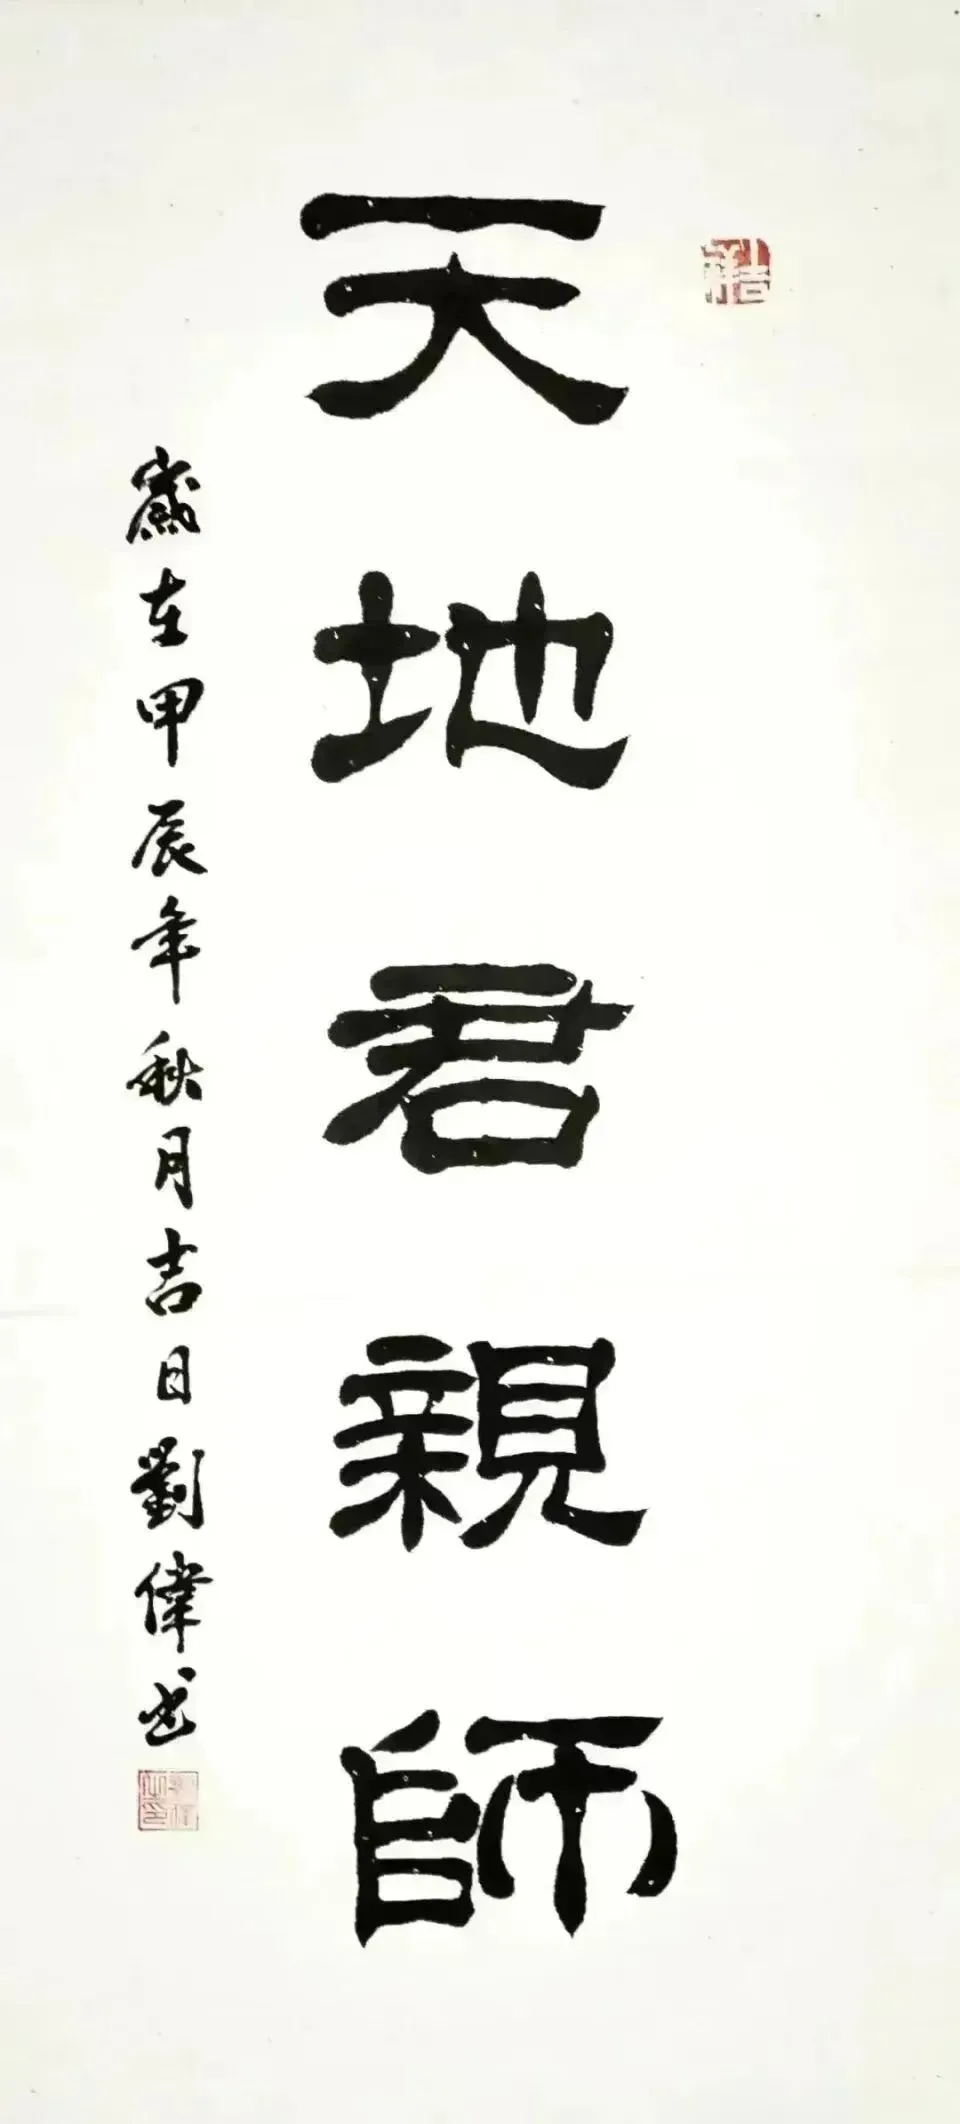 吉祥
天地君親師
歲在甲辰年秋月吉日劉偉书